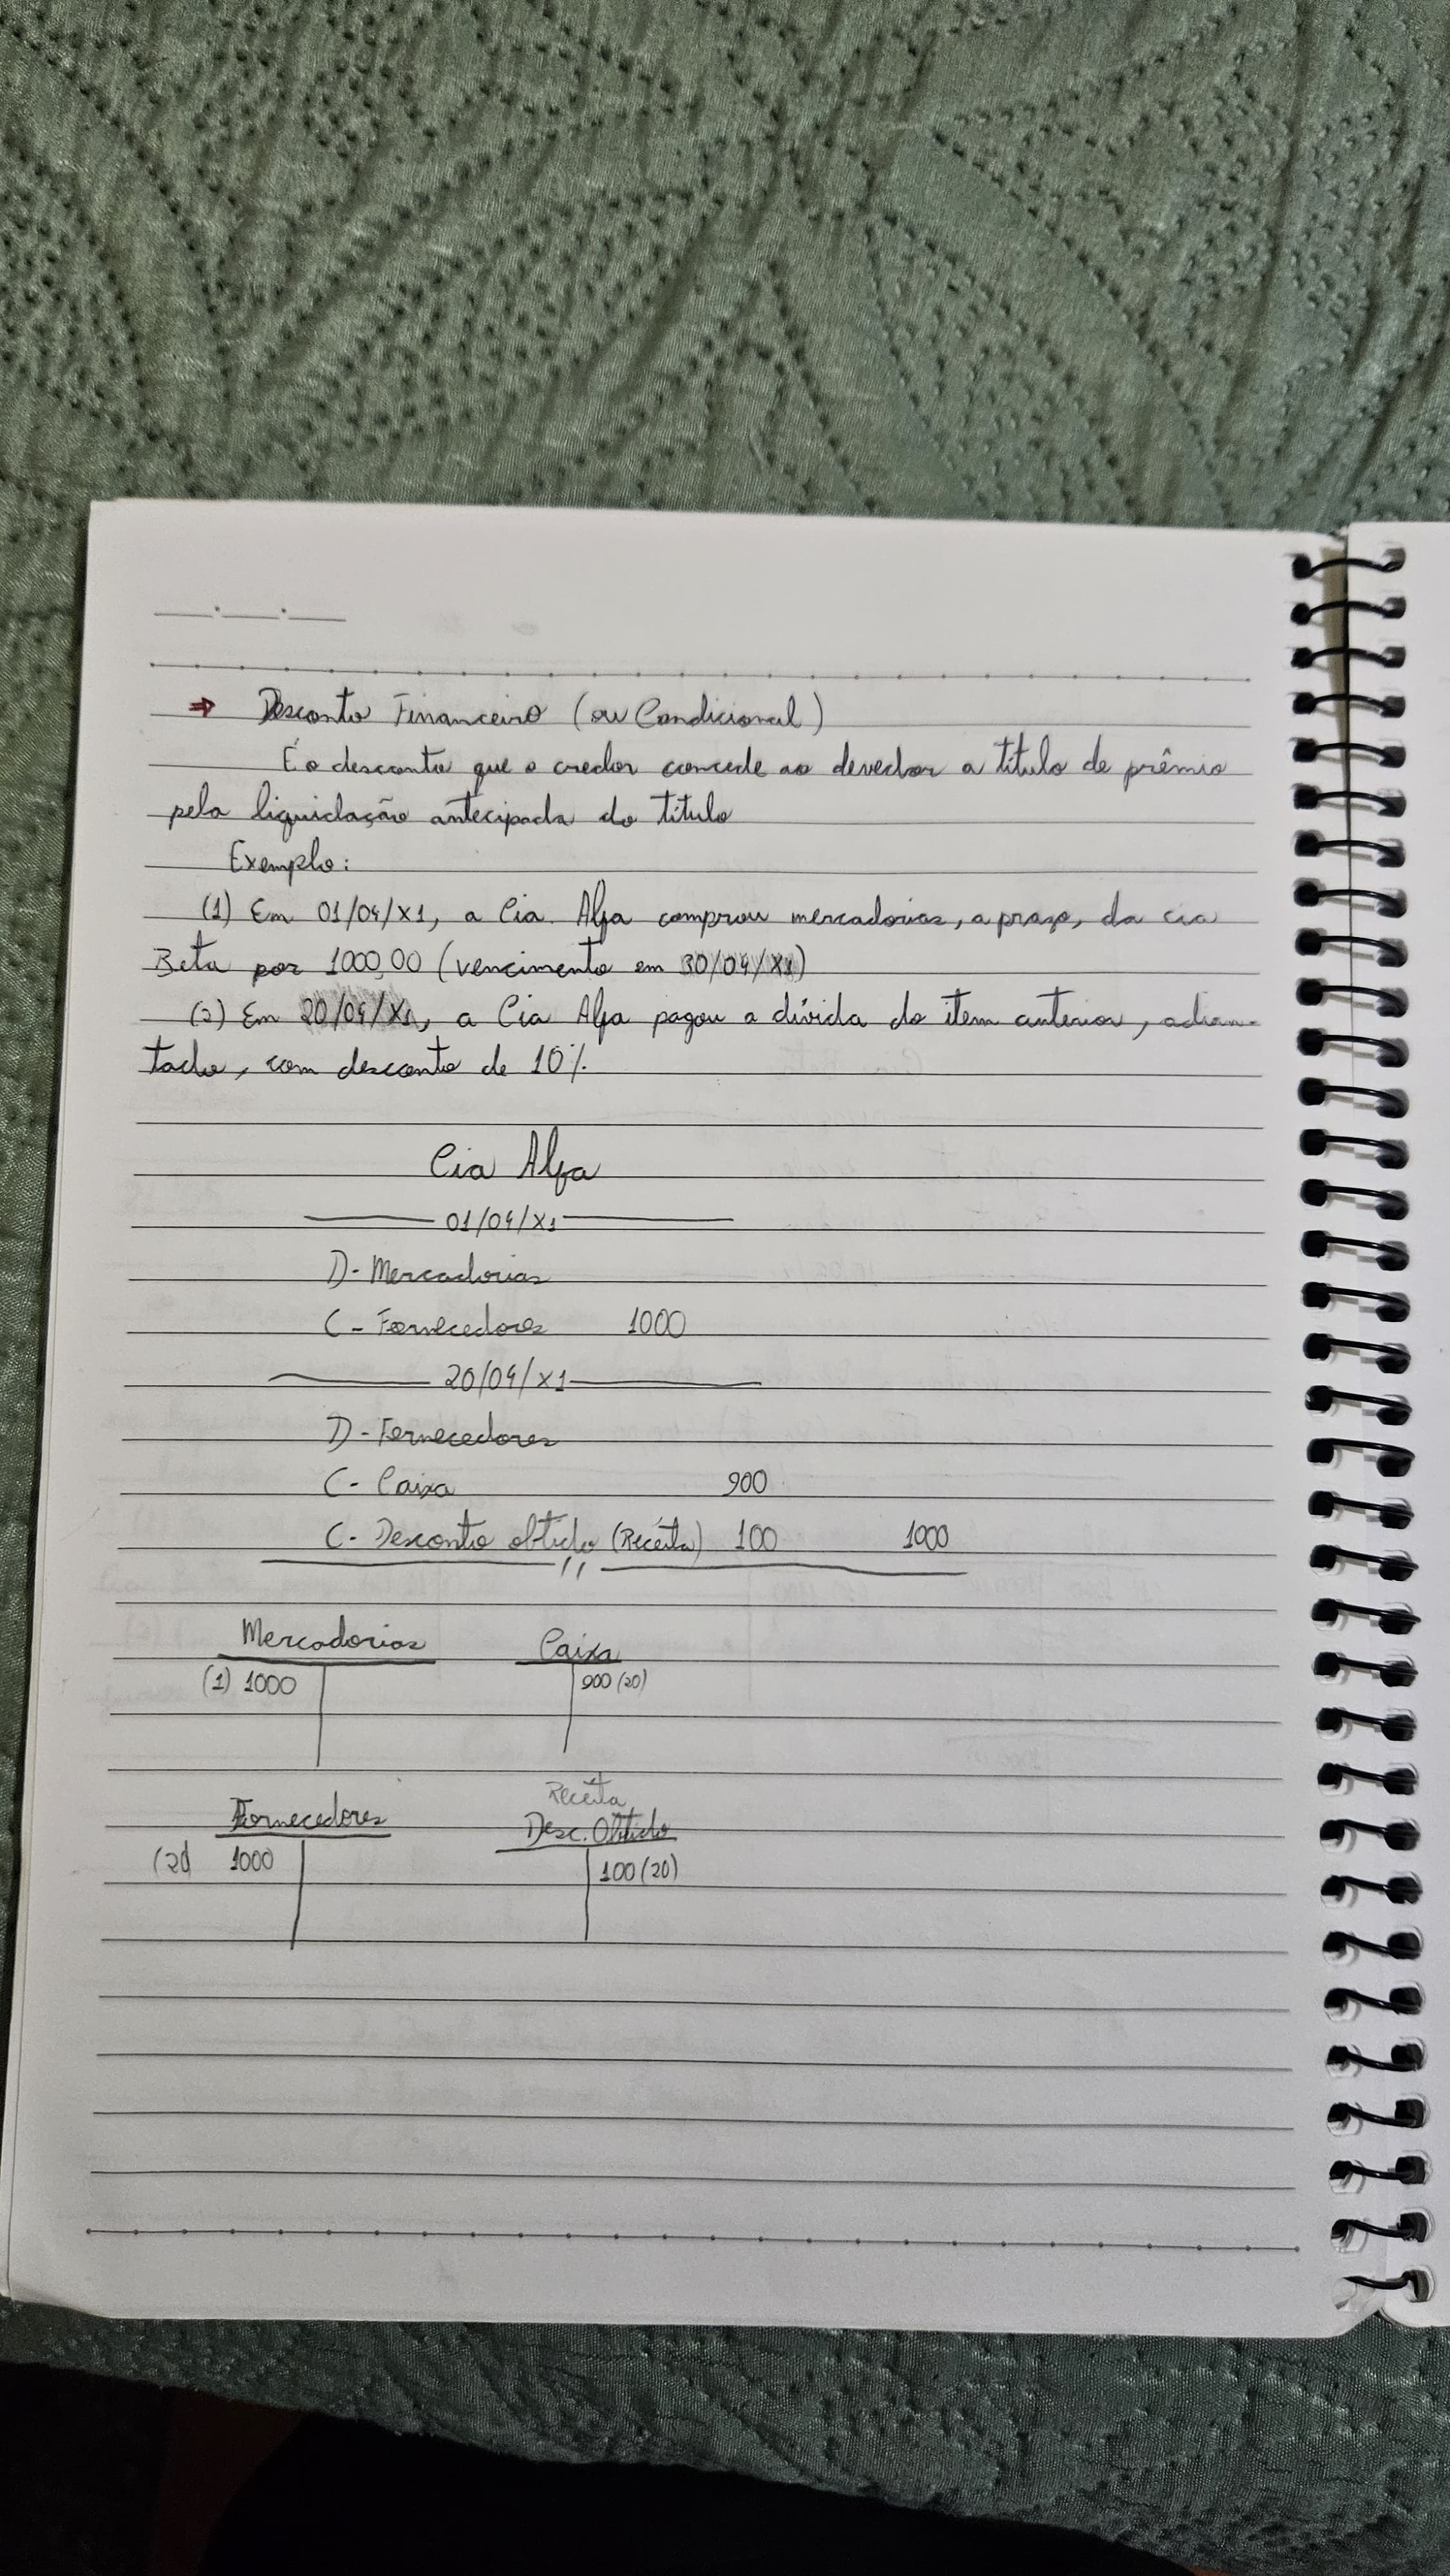 ⇒ Desconto Financeiro (ou Condicional)
É o desconto que o credor concede ao devedor a título de prêmio
pela liquidação antecipada do título
Exemplo:
(1) Em 01/04/X1, a Cia. Alfa comprou mercadorias, a prazo, da cia
Beta por 1000,00 (vencimento em 30/04/X1)
(2) Em 20/04/X1, a Cia Alfa pagou a dívida do item anterior, adian-
tado, com desconto de 10%.
Cia Alfa
01/04/X1
D- Mercadorias
C- Fornecedores 1000
20/04/X1
D- Fornecedores
C- Caixa 900
C- Desconto obtido (Receita) 100 1000
Mercadorias Caixa
(1) 1000 900 (20)
Receita
Fornecedores Desc. Obtido
1000 100 (20)